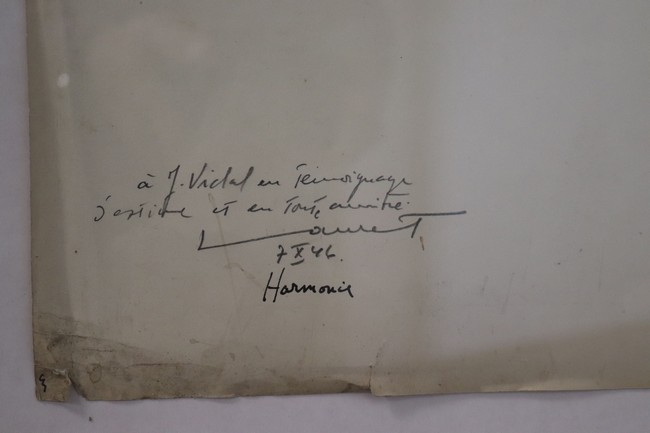 à J. Vidal en témoignage
d'estime et en toute amitié.
Laurent
7 X 46.
Harmonie